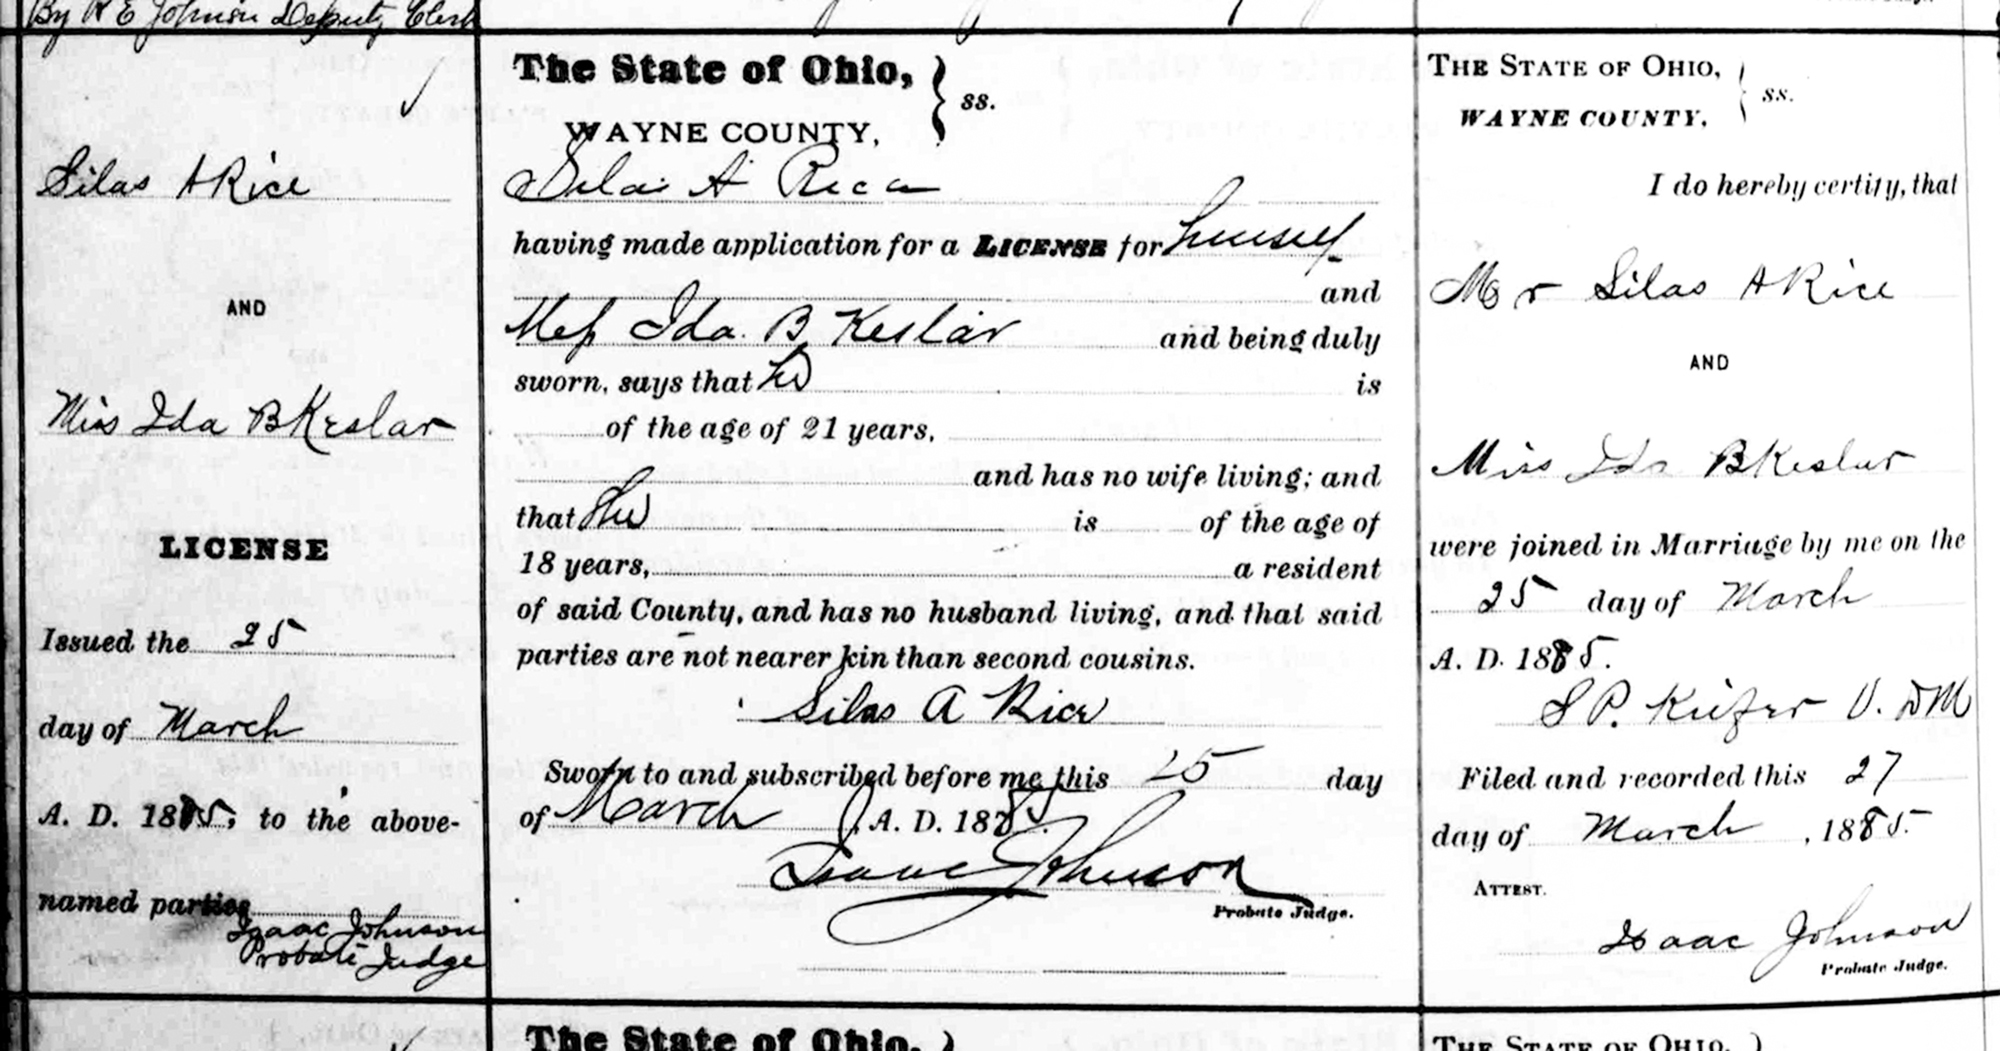 By R E Johnson Deputy Clerk
Silas A Rice
AND
Miss Ida B Keslar
LICENSE
Issued the 25
day of March
A. D. 1885, to the above-
named parties
Isaac Johnson
Probate Judge
The State of Ohio, } ss.
WAYNE COUNTY,
Silas A Rice
having made application for a LICENSE for himself
and
Miss Ida B Keslar and being duly
sworn, says that he is
of the age of 21 years,
and has no wife living; and
that she is of the age of
18 years, a resident
of said County, and has no husband living, and that said
parties are not nearer kin than second cousins.
Silas A Rice
Sworn to and subscribed before me this 25 day
of March A. D. 1885.
Isaac Johnson
Probate Judge.
The State of Ohio, )
THE STATE OF OHIO, } ss.
WAYNE COUNTY,
I do hereby certify, that
Mr Silas A Rice
AND
Miss Ida B Keslar
were joined in Marriage by me on the
25 day of March
A. D. 1885.
S P. Keifer V. D M
Filed and recorded this 27
day of March, 1885.
ATTEST.
Isaac Johnson
Probate Judge.
THE STATE OF OHIO, )